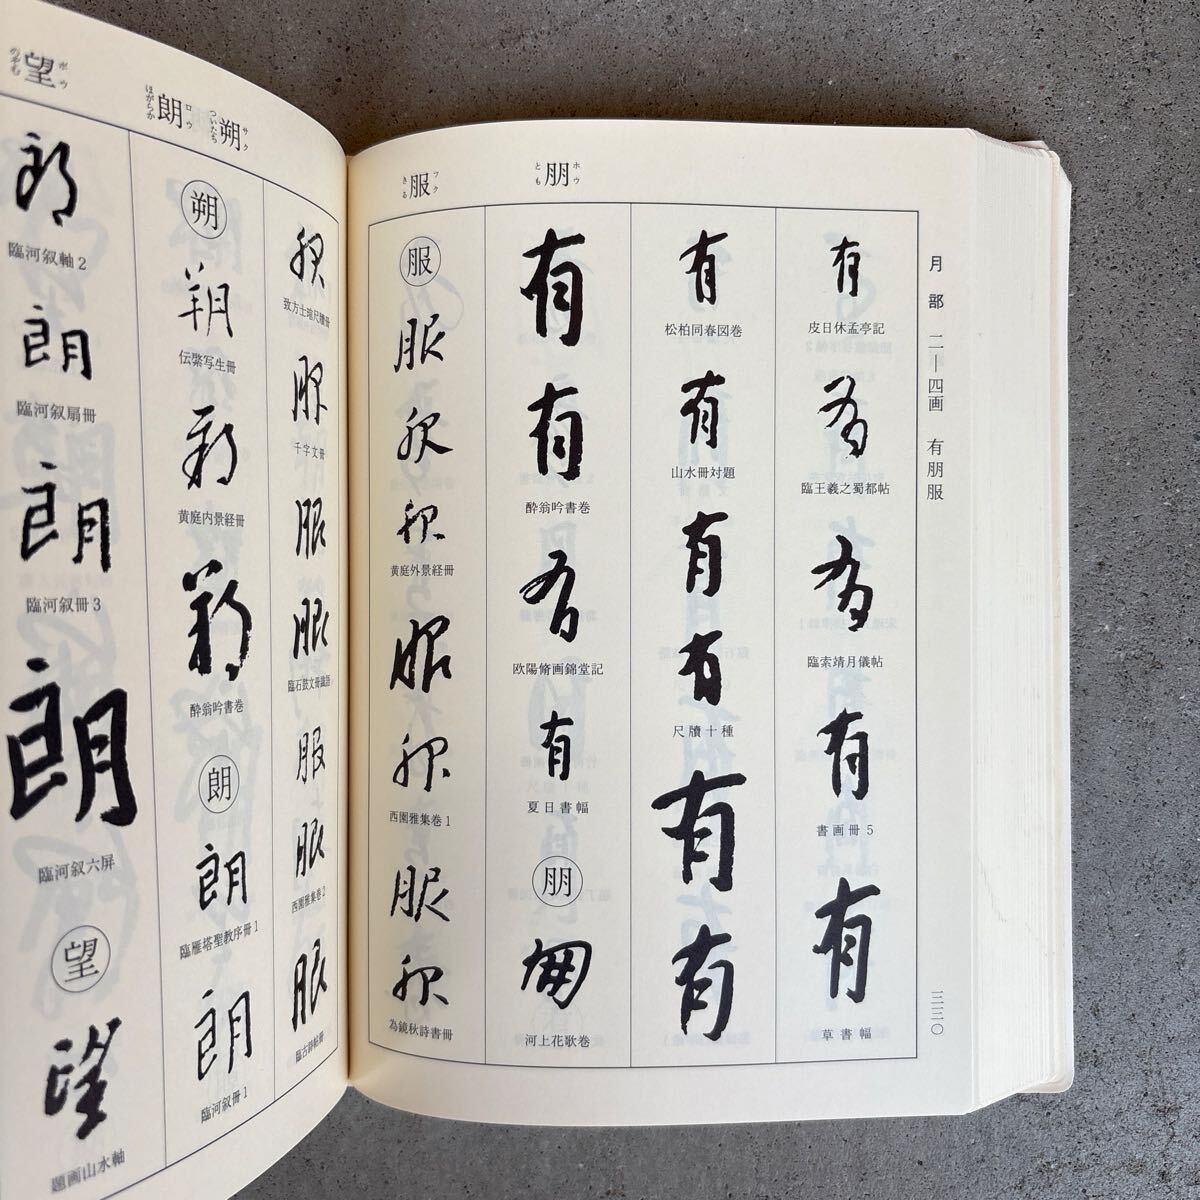 月部 二―四画 有朋服
三三〇
朋
ホウ
とも
服
フク
きる
有
皮日休孟亭記
有
臨王羲之蜀都帖
有
臨索靖月儀帖
有
書画冊5
有
草書幅
有
松柏同春図巻
有
山水冊対題
有
有
尺牘十種
有
有
有
有
酔翁吟書巻
有
欧陽脩画錦堂記
有
夏日書幅
朋
朋
河上花歌巻
服
服
服
服
黄庭外景経冊
服
服
西園雅集巻1
服
服
為鏡秋詩書冊
朔
サク
ついたち
朗
ロウ
ほがらか
望
ボウ
のぞむ
服
服
千字文冊
服
服
服
服
西園雅集巻2
服
朔
朔
伝綮写生冊
朔
黄庭内景経冊
朔
酔翁吟書巻
朗
朗
臨雁塔聖教序冊1
朗
臨河叙冊1
朗
臨河叙軸2
朗
臨河叙扇冊
朗
臨河叙冊3
朗
臨河叙六屏
望
望
題画山水軸